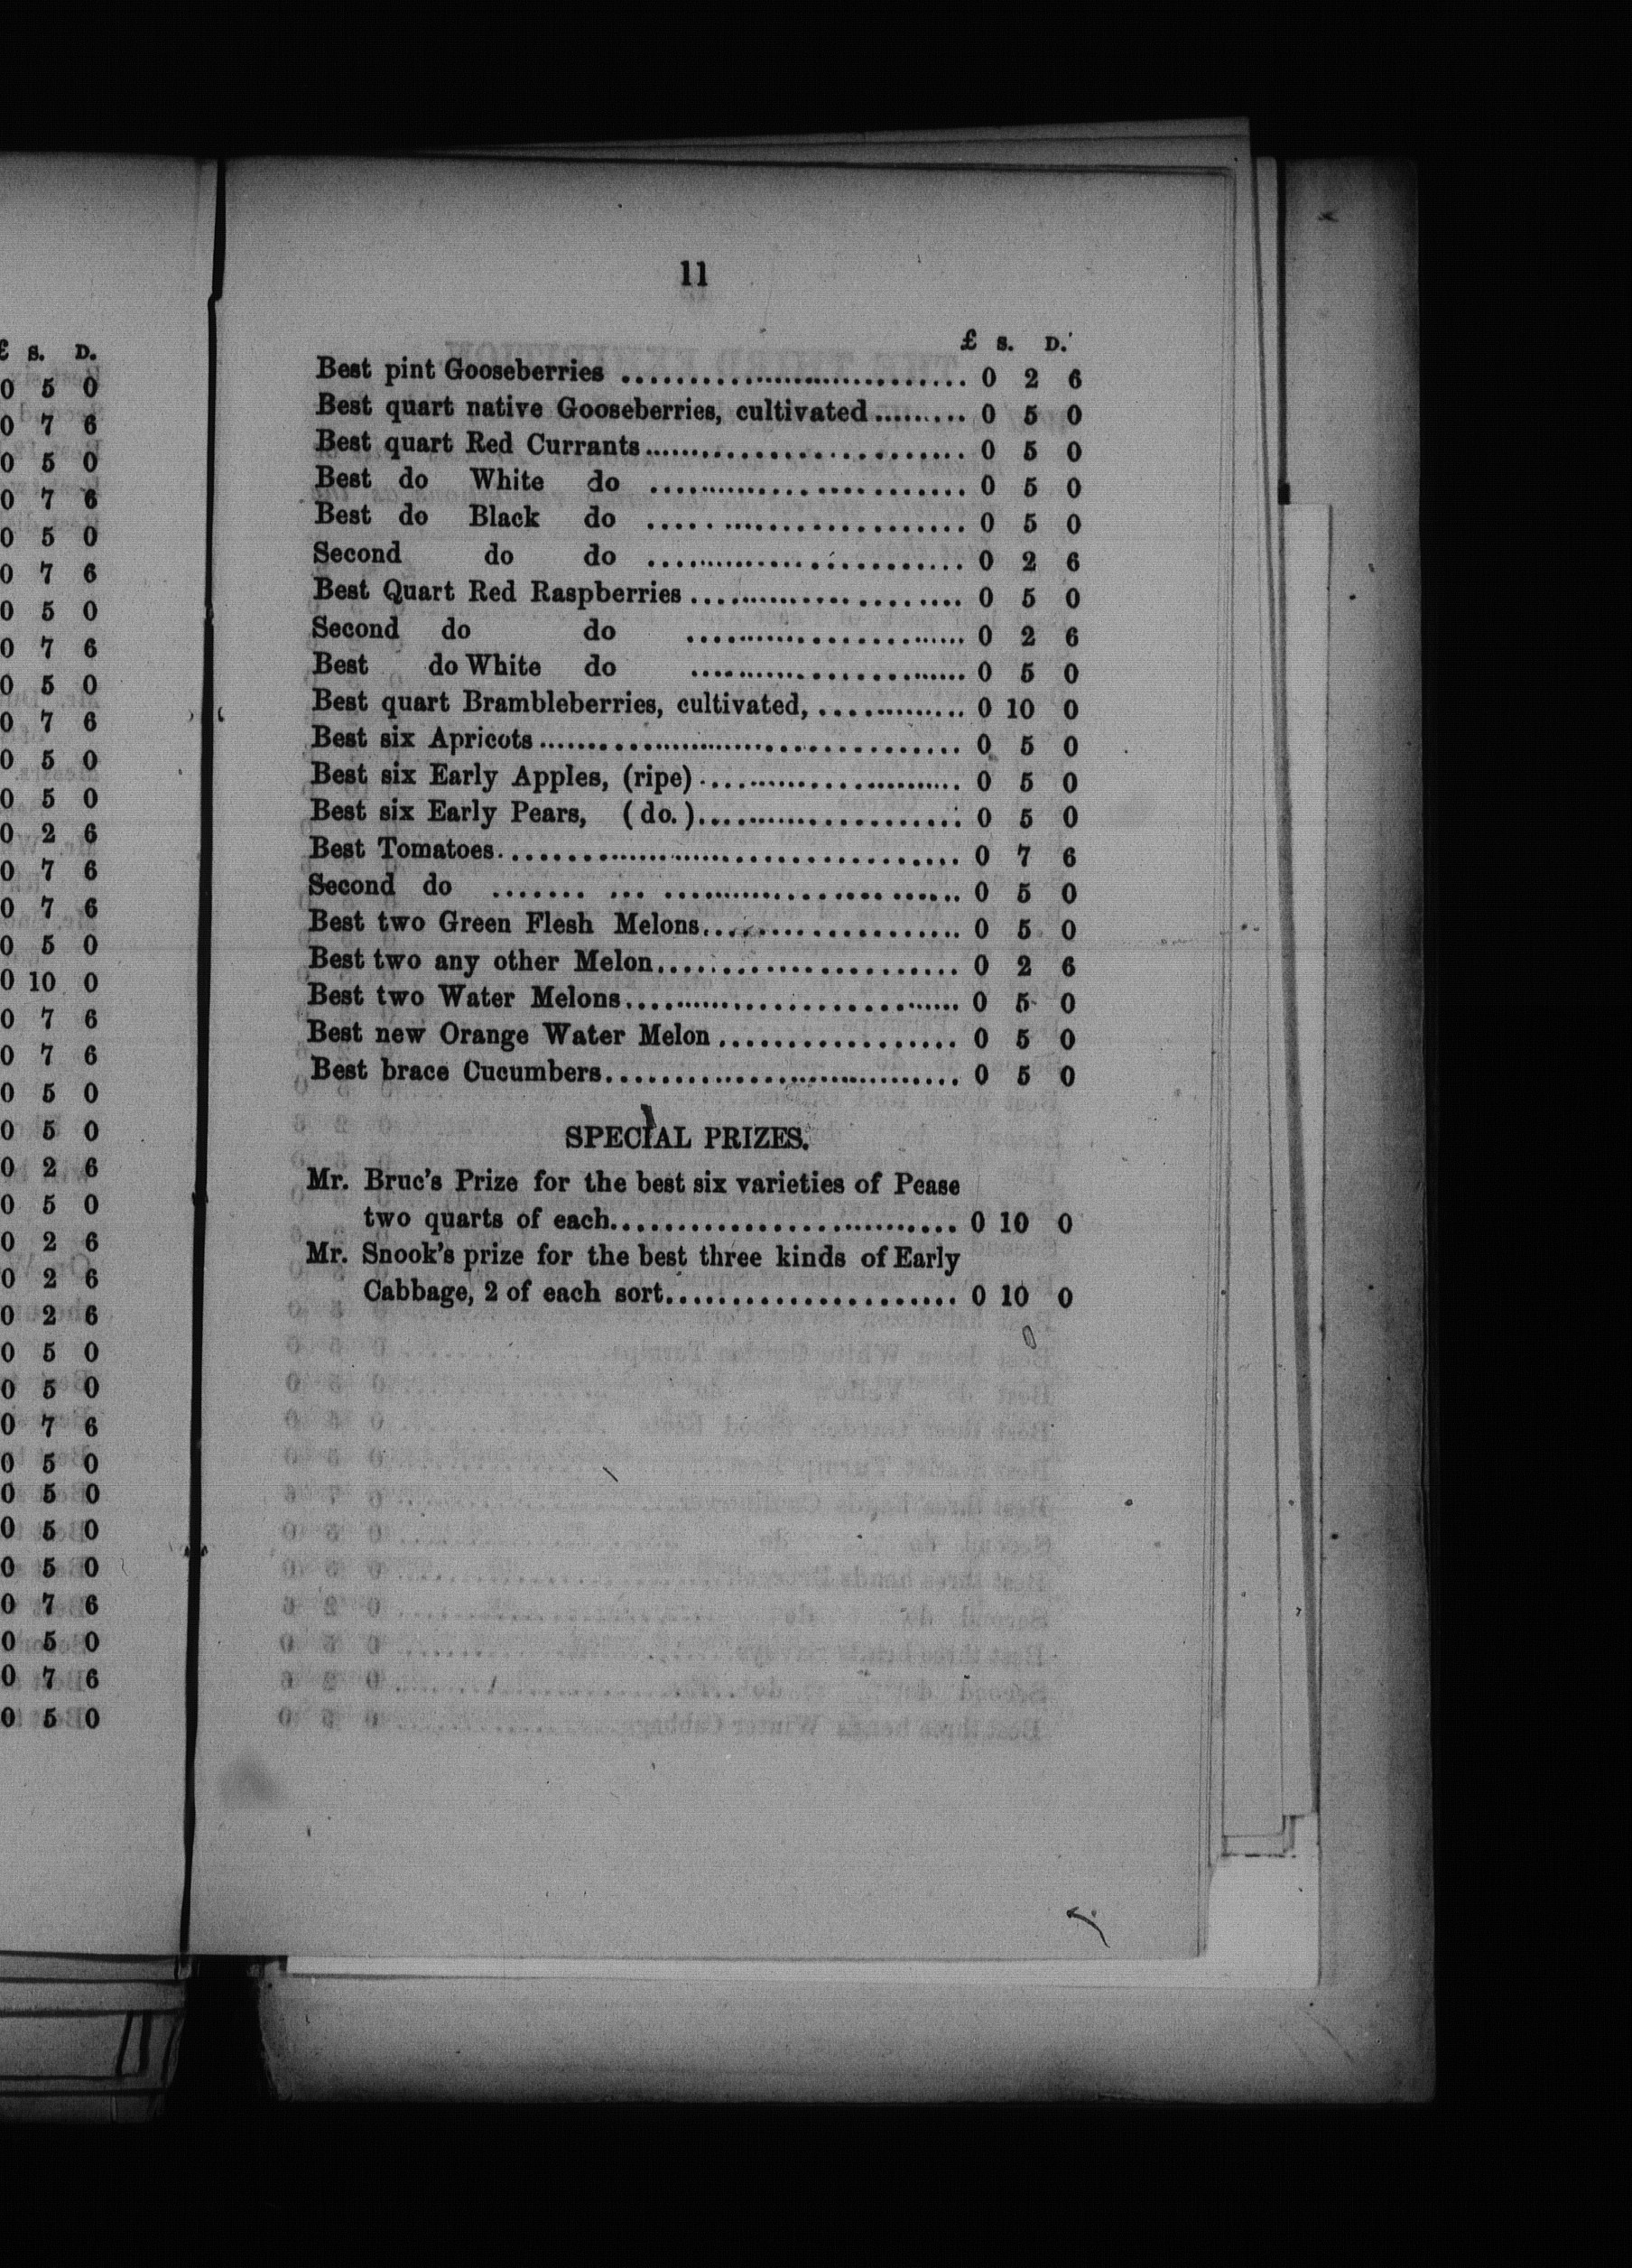 £ S. D.
0 5 0
0 7 6
0 5 0
0 7 6
0 5 0
0 7 6
0 5 0
0 7 6
0 5 0
0 7 6
0 5 0
0 5 0
0 2 6
0 7 6
0 7 6
0 5 0
0 10 0
0 7 6
0 7 6
0 5 0
0 5 0
0 2 6
0 5 0
0 2 6
0 2 6
0 2 6
0 5 0
0 5 0
0 7 6
0 5 0
0 5 0
0 5 0
0 5 0
0 7 6
0 5 0
0 7 6
0 5 0
11
£ S. D.
Best pint Gooseberries .............................. 0 2 6
Best quart native Gooseberries, cultivated......... 0 5 0
Best quart Red Currants.............................. 0 5 0
Best do White do .............................. 0 5 0
Best do Black do .............................. 0 5 0
Second do do .............................. 0 2 6
Best Quart Red Raspberries ......................... 0 5 0
Second do do ......................... 0 2 6
Best do White do ......................... 0 5 0
Best quart Brambleberries, cultivated, .............. 0 10 0
Best six Apricots.................................... 0 5 0
Best six Early Apples, (ripe)........................ 0 5 0
Best six Early Pears, (do.)........................ 0 5 0
Best Tomatoes........................................ 0 7 6
Second do ....... ... .......................... 0 5 0
Best two Green Flesh Melons........................ 0 5 0
Best two any other Melon.......................... 0 2 6
Best two Water Melons............................. 0 5 0
Best new Orange Water Melon.................. 0 5 0
Best brace Cucumbers.............................. 0 5 0
SPECIAL PRIZES.
Mr. Bruc's Prize for the best six varieties of Pease
two quarts of each........................... 0 10 0
Mr. Snook's prize for the best three kinds of Early
Cabbage, 2 of each sort...................... 0 10 0